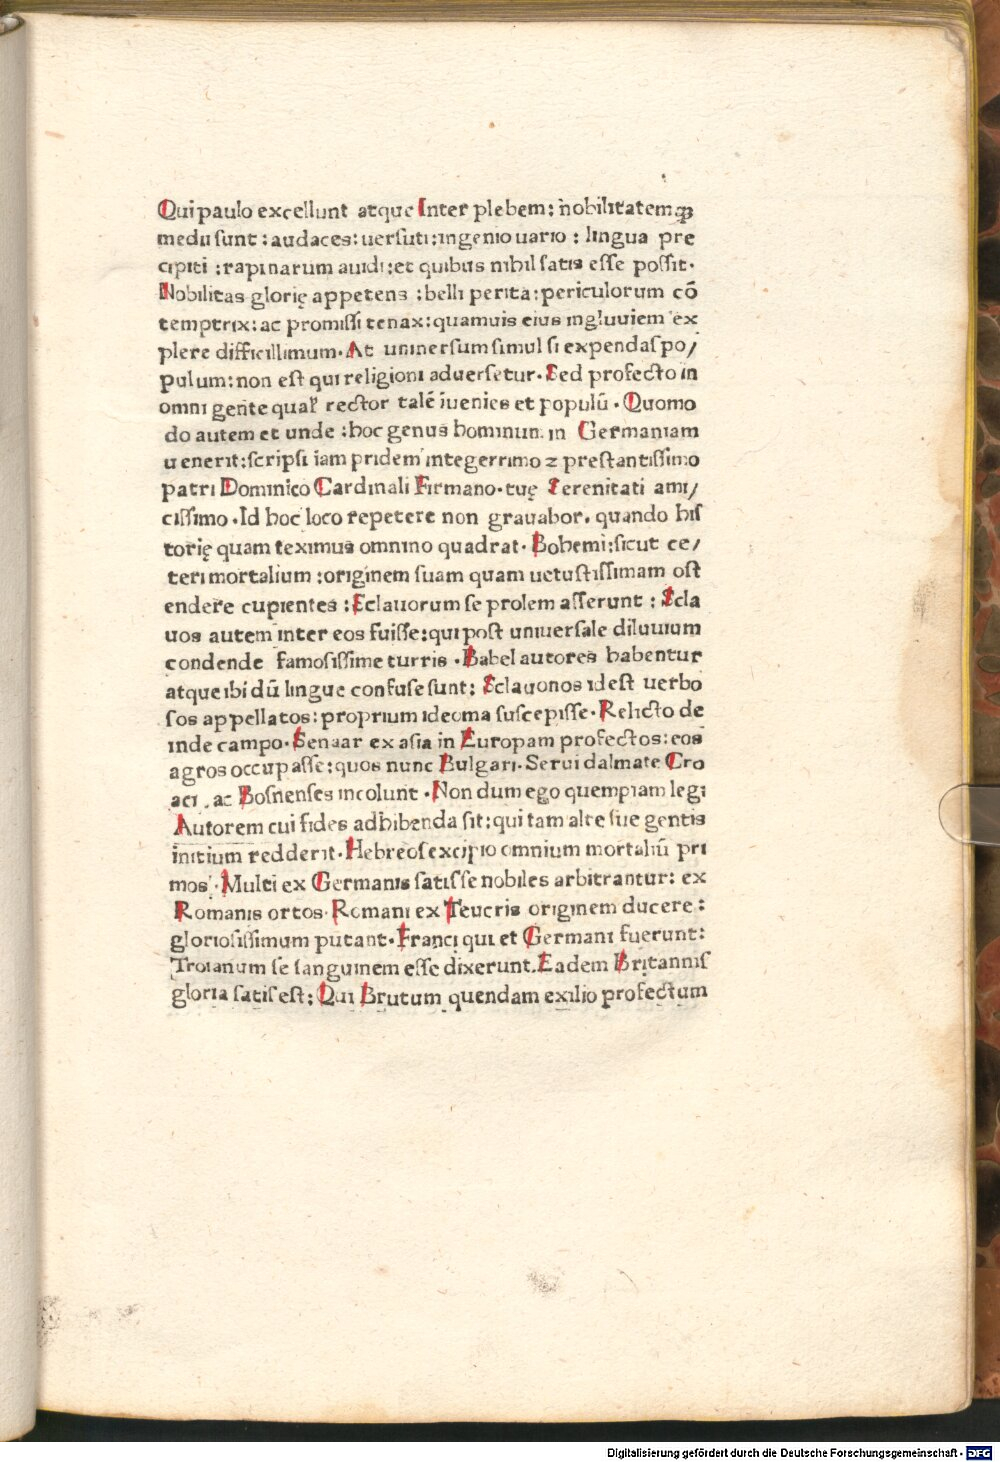 Qui paulo excellunt atque Inter plebem: nobilitatemqꝫ
medii sunt: audaces: uersuti: ingenio uario: lingua pre
cipiti: rapinarum auidi: et quibus nihil satis esse possit.
Nobilitas glorię appetens: belli perita: periculorum cō
temptrix: ac promissi tenax: quamuis eius ingluuiem ex
plere difficillimum. At uniuersum simul si expendas po/
pulum: non est qui religioni aduersetur. Sed profecto in
omni gente qual' rector talē iuenies et populū. Quomo
do autem et unde: hoc genus hominum in Germaniam
uenerit: scripsi iam pridem integerrimo ⁊ prestantissimo
patri Dominico Cardinali Firmano. tuę Serenitati ami/
cissimo. Id hoc loco repetere non grauabor. quando his
torię quam teximus omnino quadrat. Bohemi: sicut ce/
teri mortalium: originem suam quam uetustissimam ost
endere cupientes: Sclauorum se prolem asserunt: Scla
uos autem inter eos fuisse: qui post uniuersale diluuium
condende famosissime turris. Babel autores habentur
atque ibi dū lingue confuse sunt: Sclauonos id est uerbo
sos appellatos: proprium ideoma suscepisse. Relicto de
inde campo. Senaar ex asia in Europam profectos: eos
agros occupasse: quos nunc Bulgari. Serui dalmate Cro
aci. ac Bosnenses incolunt. Non dum ego quempiam legi
Autorem cui fides adhibenda sit: qui tam alte sue gentis
initium redderit. Hebreos excipio omnium mortaliū pri
mos. Multi ex Germanis satis se nobiles arbitrantur: ex
Romanis ortos. Romani ex Teucris originem ducere:
gloriosissimum putant. Franci qui et Germani fuerunt:
Troianum se sanguinem esse dixerunt. Eadem Britannis
gloria satis est: Qui Brutum quendam exilio profectum
Digitalisierung gefördert durch die Deutsche Forschungsgemeinschaft - DFG